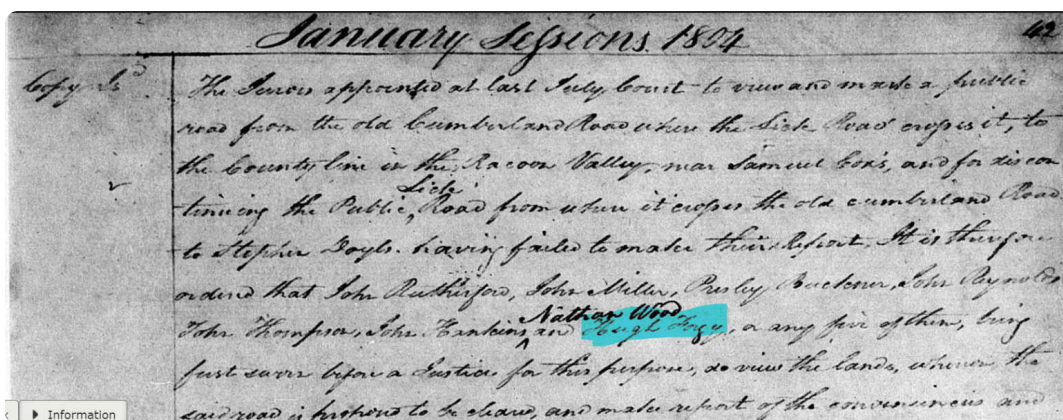 January Sessions 1804 42
Copy Isd The Jurors appointed at last July Court to view and mark a public
road from the old Cumberland Road where the Lick Road crosses it, to
the County line in the Racoon Valley, near Samuel Cox's, and for discon
Lick
tinuing the Public, Road from where it crosses the old Cumberland Road
to Stephen Doyls. having failed to make their Report, It is therefore
ordered that John Rutherford, John Miller, Presley Buckner, John Reynolds
Nathan Wood
John Thompson, John Hankins ^ and Hugh Forgy, or any five of them, being
first sworn before a Justice for this purpose, do view the lands, whereon the
said road is proposed to be cleared, and make report of the conveniences and
Information